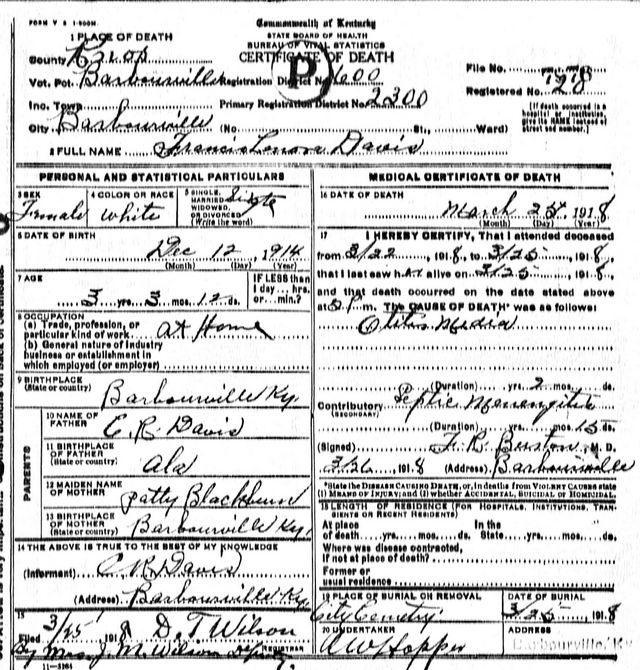 FORM V S 1-500M.
Commonwealth of Kentucky
STATE BOARD OF HEALTH
BUREAU OF VITAL STATISTICS
CERTIFICATE OF DEATH
1 PLACE OF DEATH
County Knox
Vot. Pct. Barbourville Registration District No. 600
File No.
Inc. Town Primary Registration District No. 2300
Registered No. 28
City Barbourville (No. St., Ward)
(If death occurred in a hospital or institution, give its NAME instead of street and number.)
2 FULL NAME Francis Lenora Davis
PERSONAL AND STATISTICAL PARTICULARS
3 SEX Female
4 COLOR OR RACE white
5 SINGLE, MARRIED, WIDOWED, OR DIVORCED (Write the word) Single
6 DATE OF BIRTH
Dec 12, 1914
(Month) (Day) (Year)
7 AGE
3 yrs. 3 mos. 12 ds.
IF LESS than 1 day, ... hrs. or ... min.?
8 OCCUPATION
(a) Trade, profession, or particular kind of work at Home
(b) General nature of industry business or establishment in which employed (or employer)
9 BIRTHPLACE
(State or country) Barbourville Ky.
PARENTS
10 NAME OF FATHER C. R. Davis
11 BIRTHPLACE OF FATHER (State or country) Ala
12 MAIDEN NAME OF MOTHER Patty Blackburn
13 BIRTHPLACE OF MOTHER (State or country) Barbourville Ky.
14 THE ABOVE IS TRUE TO THE BEST OF MY KNOWLEDGE
(Informant) C. R. Davis
(Address) Barbourville Ky.
15
Filed 3/25 1918 D. T. Wilson
REGISTRAR
By Mrs J. M. Wilson Deputy
11-3184
MEDICAL CERTIFICATE OF DEATH
16 DATE OF DEATH
March 25, 1918
(Month) (Day) (Year)
17 I HEREBY CERTIFY, That I attended deceased
from 3/22, 1918, to 3/25, 1918,
that I last saw her alive on 3/25, 1918,
and that death occurred on the date stated above
at P m. The CAUSE OF DEATH* was as follows:
Otitis Media
(Duration) yrs. 2 mos. ds.
Contributory Septic Menengitis
(SECONDARY)
(Duration) yrs. mos. ds.
(Signed) F. R. Burton, M. D.
3/26 1918 (Address) Barbourville
*State the DISEASE CAUSING DEATH, or, in deaths from VIOLENT CAUSES state
(1) MEANS OF INJURY; and (2) whether ACCIDENTAL, SUICIDAL or HOMICIDAL.
18 LENGTH OF RESIDENCE (FOR HOSPITALS, INSTITUTIONS, TRANSIENTS OR RECENT RESIDENTS)
At place of death yrs. mos. ds. In the State yrs. mos. ds.
Where was disease contracted, if not at place of death?
Former or usual residence
19 PLACE OF BURIAL OR REMOVAL
City Cemetry
DATE OF BURIAL
3/25, 1918
20 UNDERTAKER
AW Hopper
ADDRESS
Barbourville, K